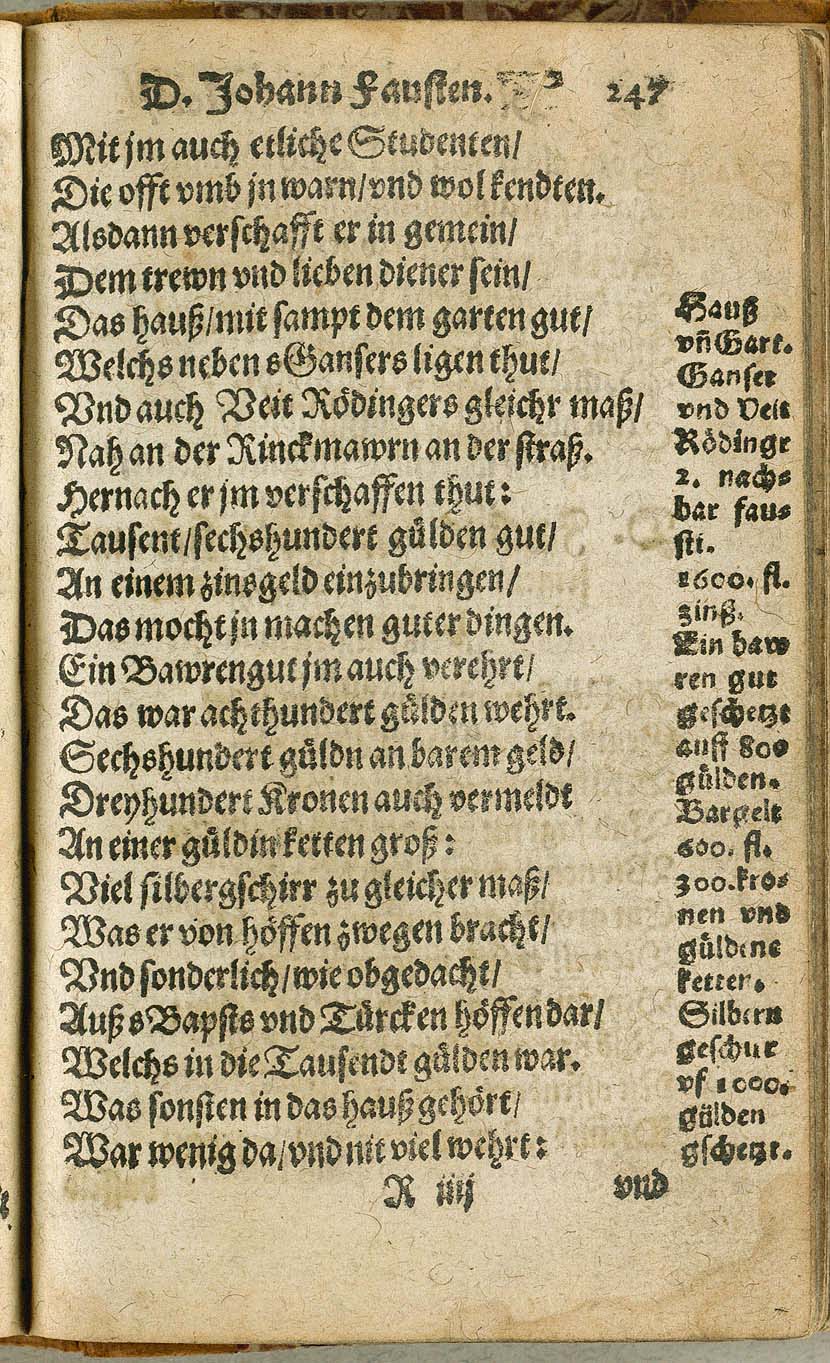 D. Johann Fausten. 247
Mit jm auch etliche Studenten/
Die offt vmb jn warn/vnd wol kendten.
Alsdann verschafft er in gemein/
Dem trewn vnd lieben diener sein/
Das hauß/mit sampt dem garten gut/
Welchs neben s Gansers ligen thut/
Vnd auch Veit Rödingers gleichr maß/
Nah an der Rinckmawrn an der straß.
Hernach er jm verschaffen thut:
Tausent/sechshundert gülden gut/
An einem zinsgeld einzubringen/
Das mocht jn machen guter dingen.
Ein Bawrengut jm auch verehrt/
Das war achthundert gülden wehrt.
Sechshundert güldn an barem geld/
Dreyhundert Kronen auch vermeldt
An einer güldin ketten groß:
Viel silbergschirr zu gleicher maß/
Was er von höffen zwegen bracht/
Vnd sonderlich/wie obgedacht/
Auß s Bapsts vnd Türcken höffen dar/
Welchs in die Tausendt gülden war.
Was sonsten in das hauß gehört/
War wenig da/vnd nit viel wehrt:
R iiij vnd
Hauß
vn̄ Gart.
Ganser
vnd Veit
Rödingr
2. nach⸗
bar fau⸗
sti.
1600. fl.
zinß.
Ein baw
ren gut
geschetzt
auff 800
gülden.
Bargelt
600. fl.
300.kro⸗
nen vnd
güldene
ketten.
Silbern
geschur
vf 1000.
gülden
gschetzt.